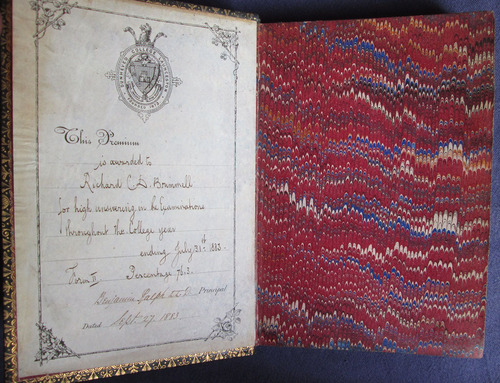 This Premium
is awarded to
Richard C. D. Brammell
for high answering in the Examinations
throughout the College year
ending July 31st 1883.
Form II Percentage 76.3.
Principal
Dated Sept. 27. 1883.